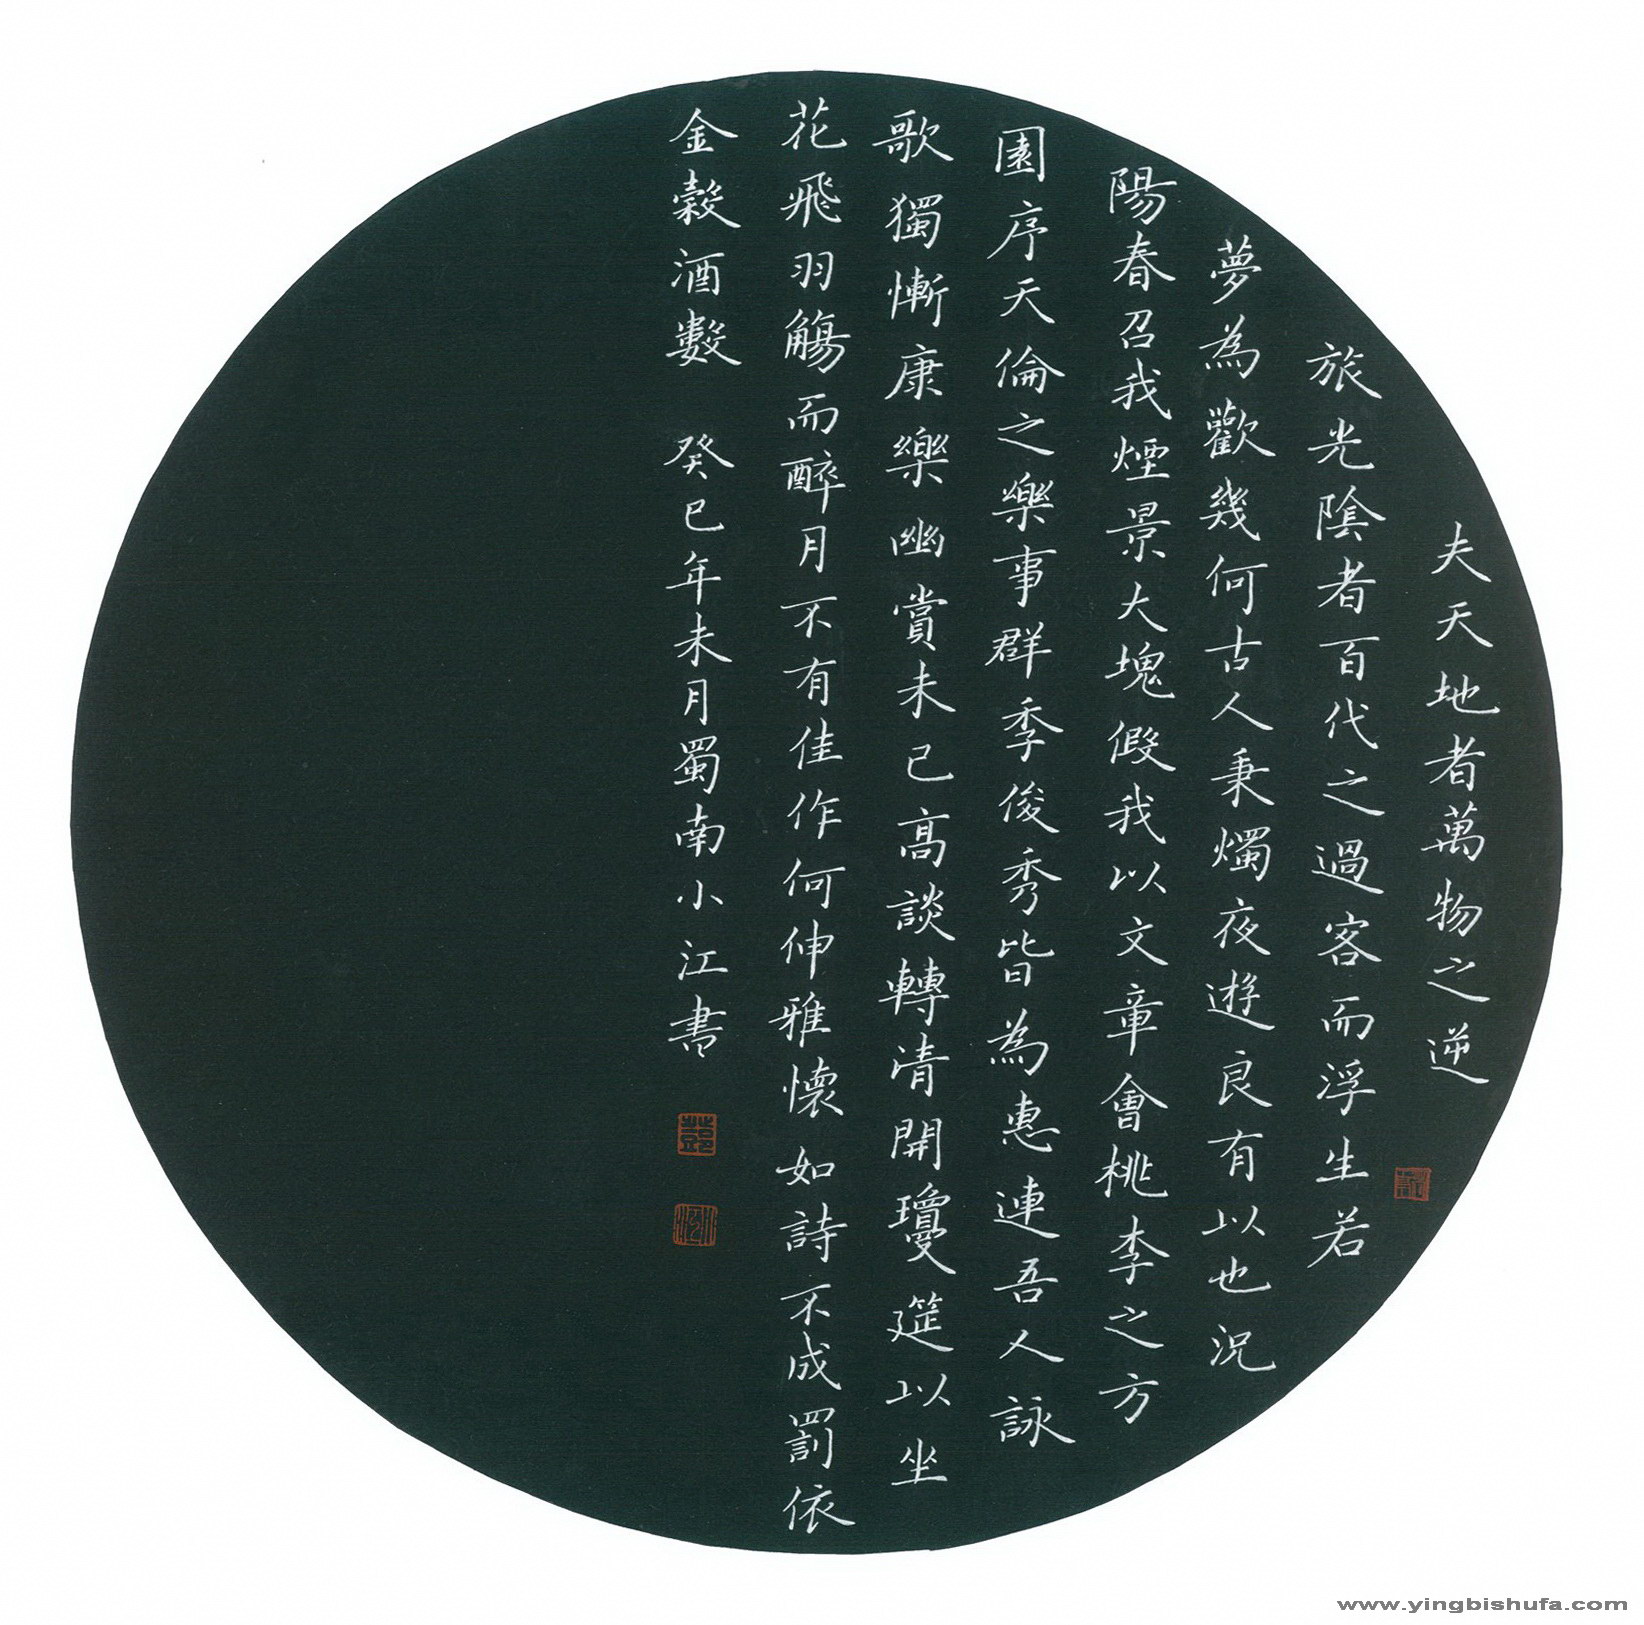 夫天地者萬物之逆
旅光陰者百代之過客而浮生若
夢為歡幾何古人秉燭夜遊良有以也況
陽春召我煙景大塊假我以文章會桃李之方
園序天倫之樂事群季俊秀皆為惠連吾人詠
歌獨慚康樂幽賞未已高談轉清開瓊筵以坐
花飛羽觴而醉月不有佳作何伸雅懷如詩不成罰依
金穀酒數 癸巳年未月蜀南小江書
www.yingbishufa.com